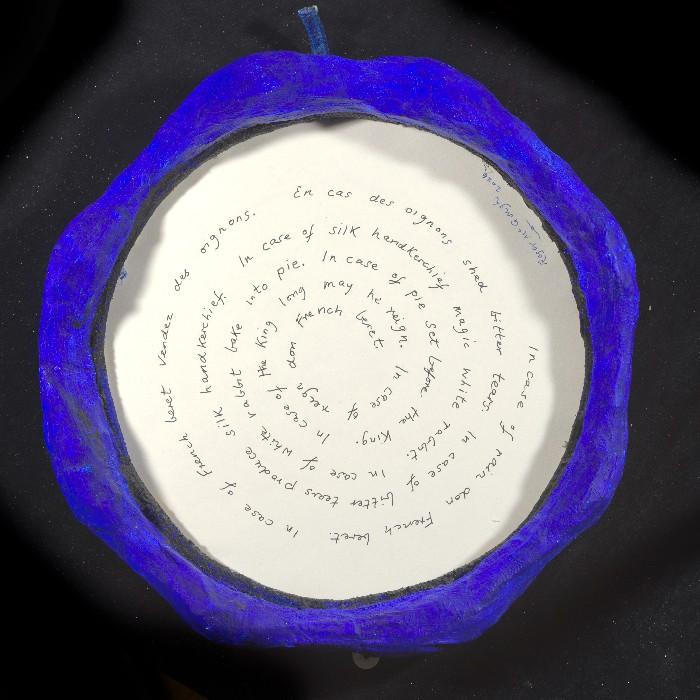 In case of rain don French beret. In case of French beret vendez des oignons. En cas des oignons shed bitter tears. In case of bitter tears produce silk handkerchief. In case of silk handkerchief magic white rabbit. In case of white rabbit bake into pie. In case of pie set before the King. In case of the King long may he reign. In case of reign don French beret.
Roger McGough